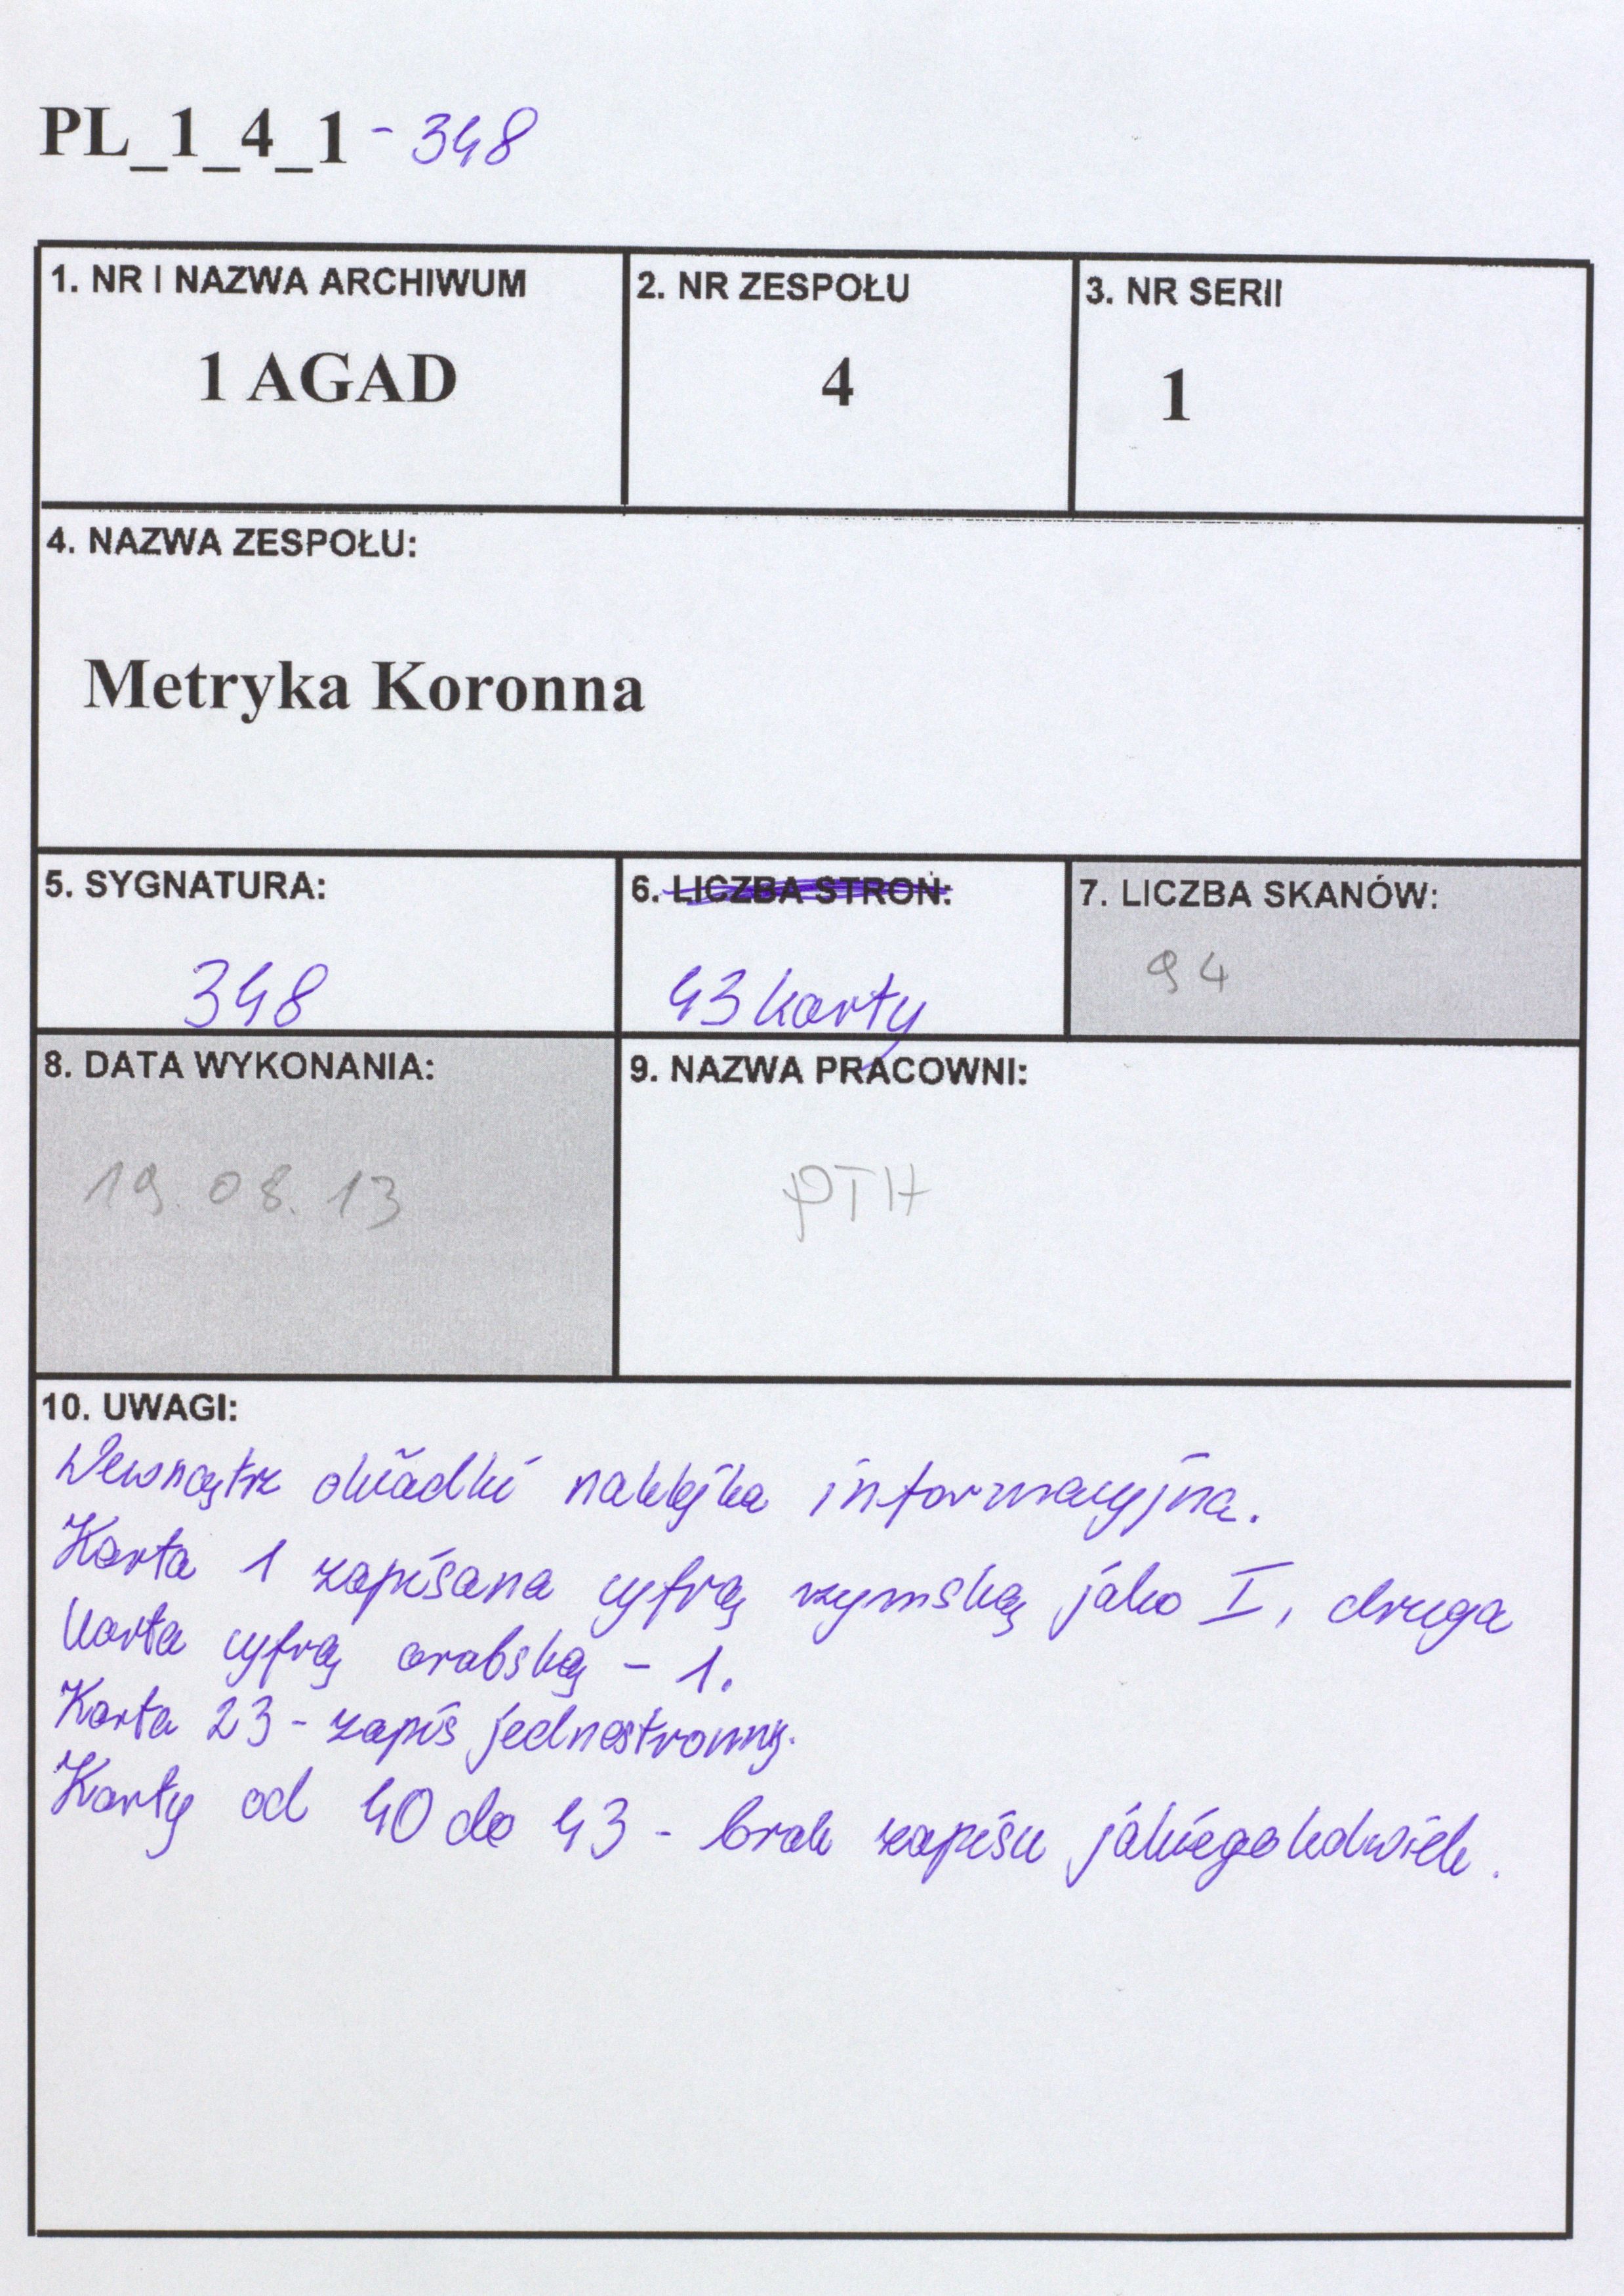 PL_1_4_1 - 348
1. NR I NAZWA ARCHIWUM
1 AGAD
2. NR ZESPOŁU
4
3. NR SERII
1
4. NAZWA ZESPOŁU:
Metryka Koronna
5. SYGNATURA:
348
6. LICZBA STRON:
43 karty
7. LICZBA SKANÓW:
94
8. DATA WYKONANIA:
19.08.13
9. NAZWA PRACOWNI:
PTH
10. UWAGI:
Wewnątrz okładki naklejka informacyjna.
Karta 1 zapisana cyfrą rzymską jako I, druga
karta cyfrą arabską - 1.
Karta 23 - zapis jednostronny.
Karty od 40 do 43 - brak zapisu jakiegokolwiek.